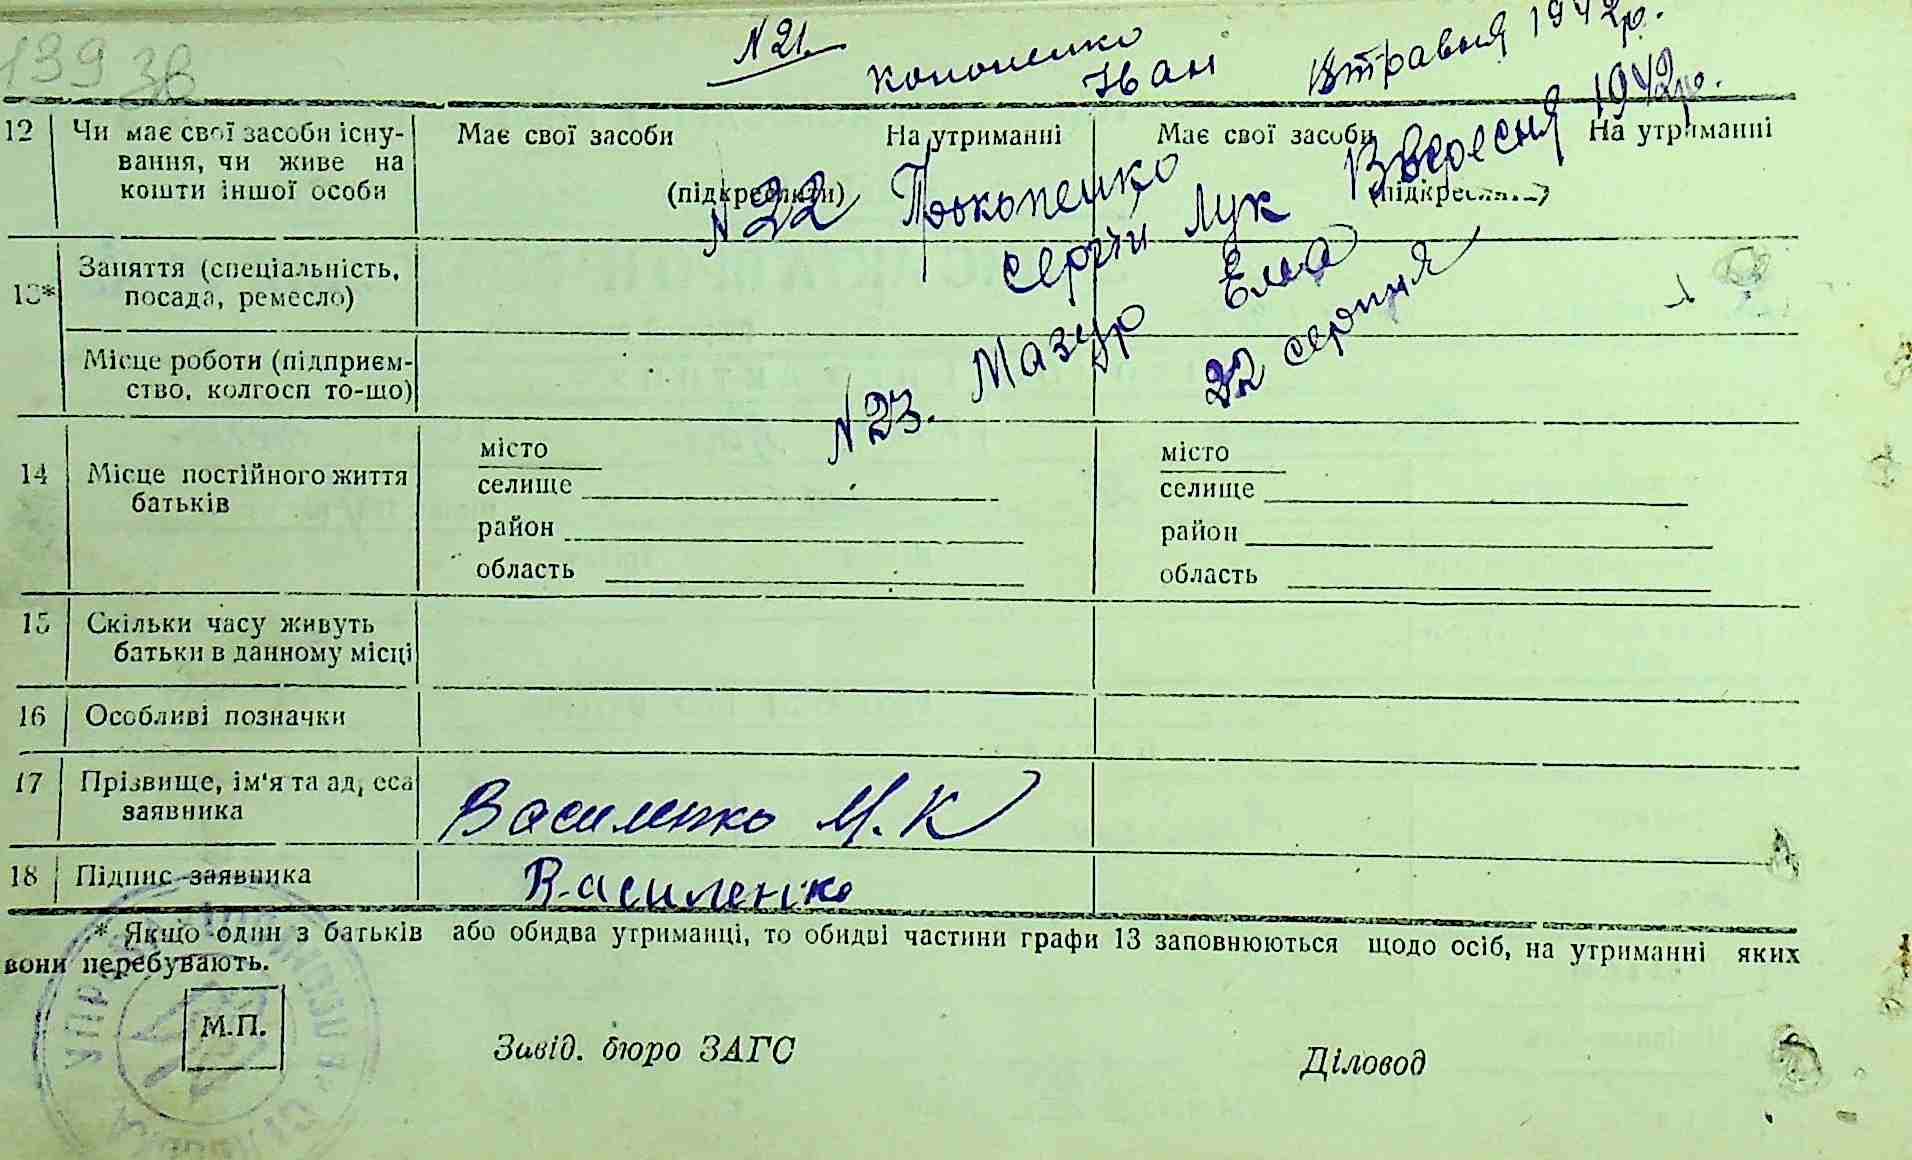 139 зв
N 21. Кононенко Іван 13 травня 1942р.
12 Чи має свої засоби існу-
вання, чи живе на
кошти іншої особи
Має свої засоби На утриманні
(підкреслити)
Має свої засоби На утриманні
(підкреслити)
N 22 Прокопенко
Сергій Лук Вересня 1942р.
13* Заняття (спеціальність,
посада, ремесло)
Місце роботи (підприєм-
ство, колгосп то-що)
N 23. Мазур
22 серпня
14 Місце постійного життя
батьків
місто
селище
район
область
місто
селище
район
область
15 Скільки часу живуть
батьки в данному місці
16 Особливі позначки
17 Прізвище, ім'я та адреса
заявника
Василенко М. К
18 Підпис заявника
Василенко
* Якщо один з батьків або обидва утриманці, то обидві частини графи 13 заповнюються щодо осіб, на утриманні яких
вони перебувають.
М.П.
Завід. бюро ЗАГС
Діловод